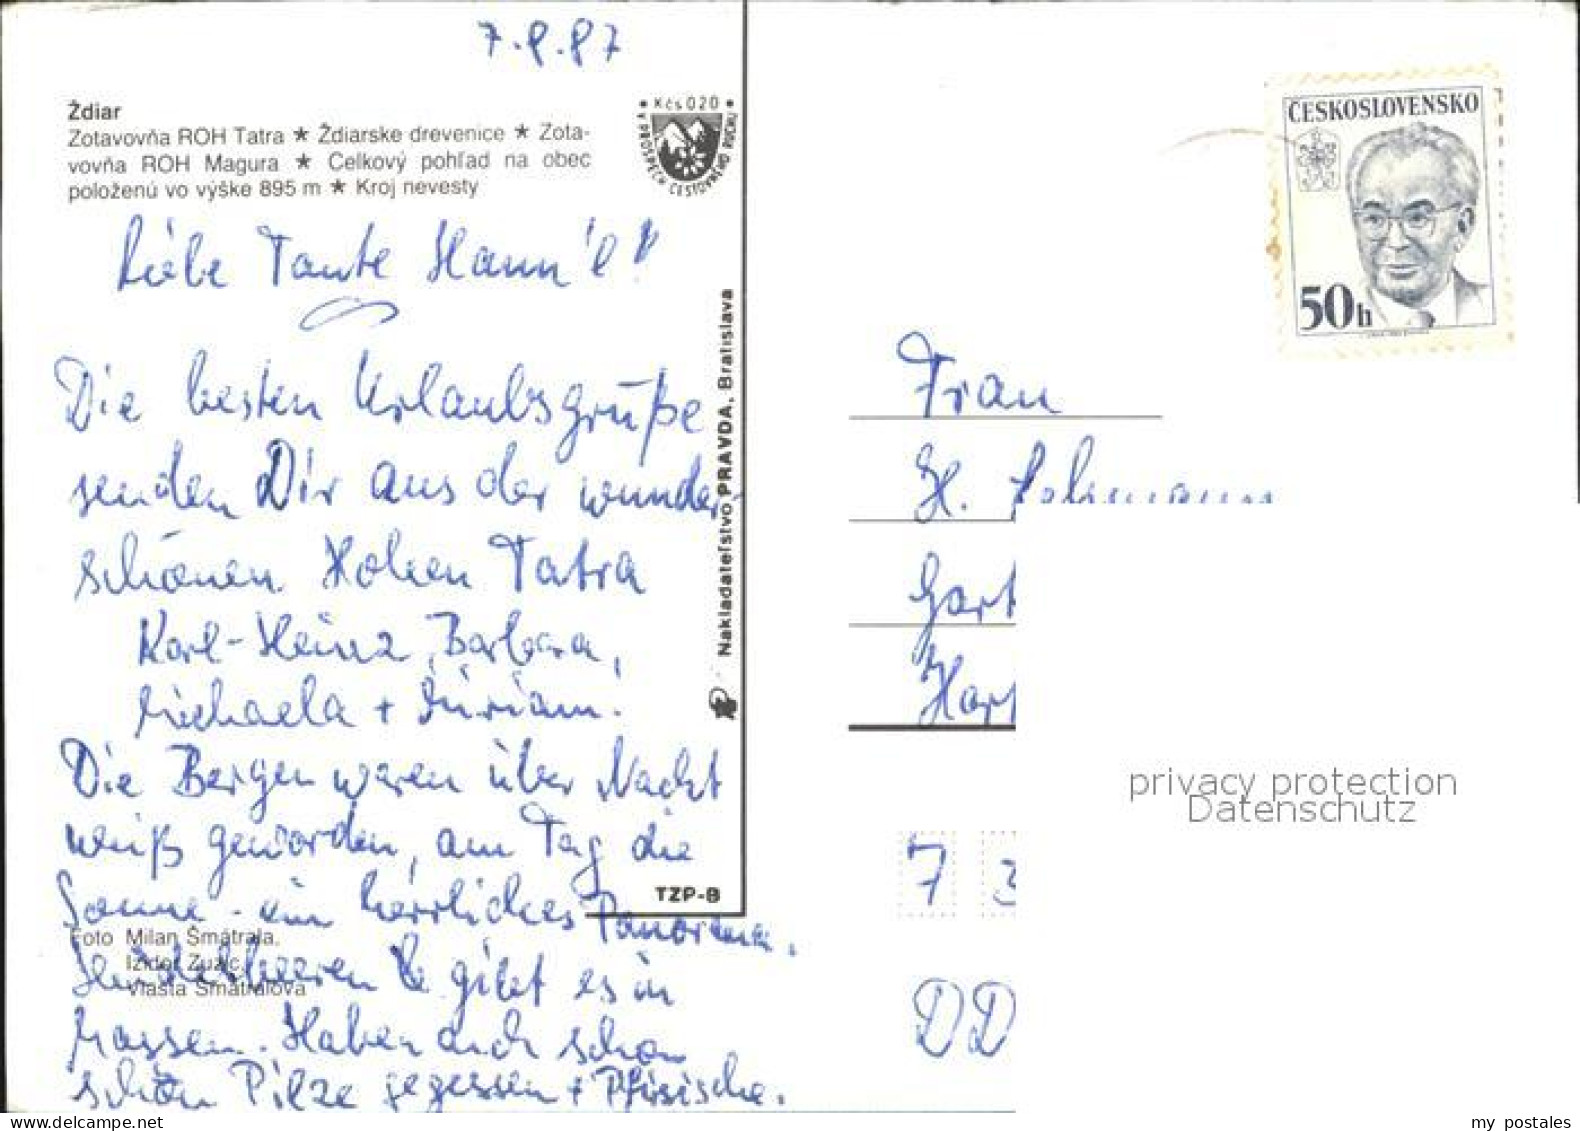 7.8.87
Ždiar
Zotavovňa ROH Tatra ★ Ždiarske drevenice ★ Zota-
vovňa ROH Magura ★ Celkový pohľad na obec
položenú vo výške 895 m ★ Kroj nevesty
• Kčs 0 20 •
V PROSPECH CESTOVNÉHO RUCHU
Liebe Tante Hann'l!
Die besten Urlaubsgrüße
senden Dir aus der wunder-
schönen Hohen Tatra
Karl-Heinz, Barbara,
Michaela + Miriam.
Die Bergen waren über Nacht
weiß geworden, am Tag die
Sonne - ein herrliches Panorama.
Heidelbeeren gibt es in
Massen. Haben auch schon
schön Pilze gegessen + Pfirsische.
Foto Milan Šmátrala,
Izidor Zuzic,
Vlasta Šmátralová
Nakladateľstvo PRAVDA, Bratislava
TZP-B
ČESKOSLOVENSKO
50h
Frau
H.
Gart
Har
7 3
DD
privacy protection
Datenschutz
my postales